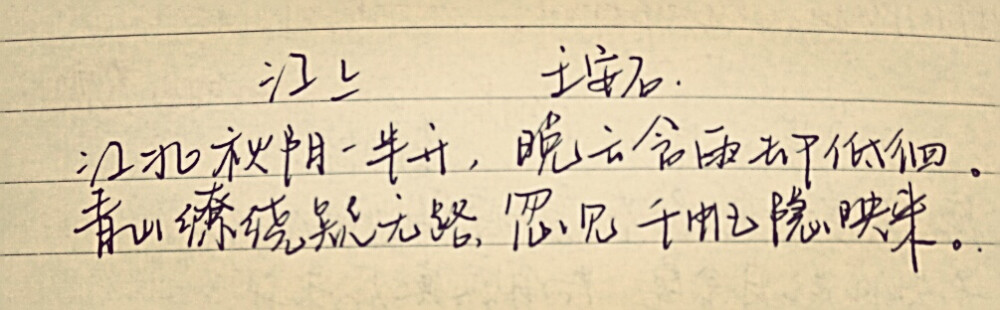 江上 王安石.
江北秋阴一半开，晚云含雨却低徊。
青山缭绕疑无路，忽见千帆隐映来。